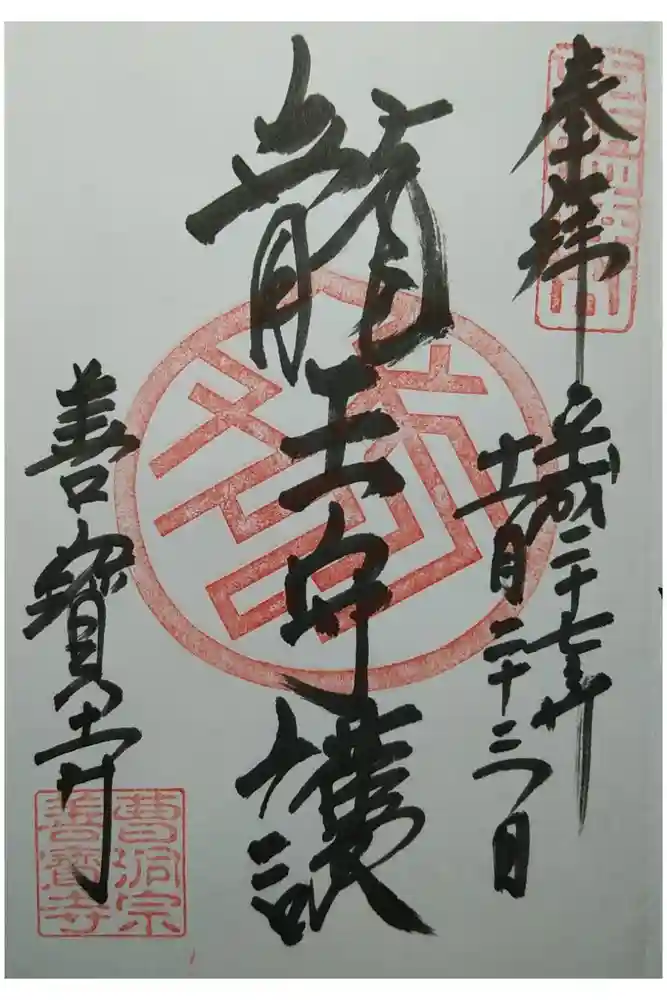 奉拝
平成二十七年
十一月二十三日
龍王守護
善寳寺
曹洞宗
善寳寺